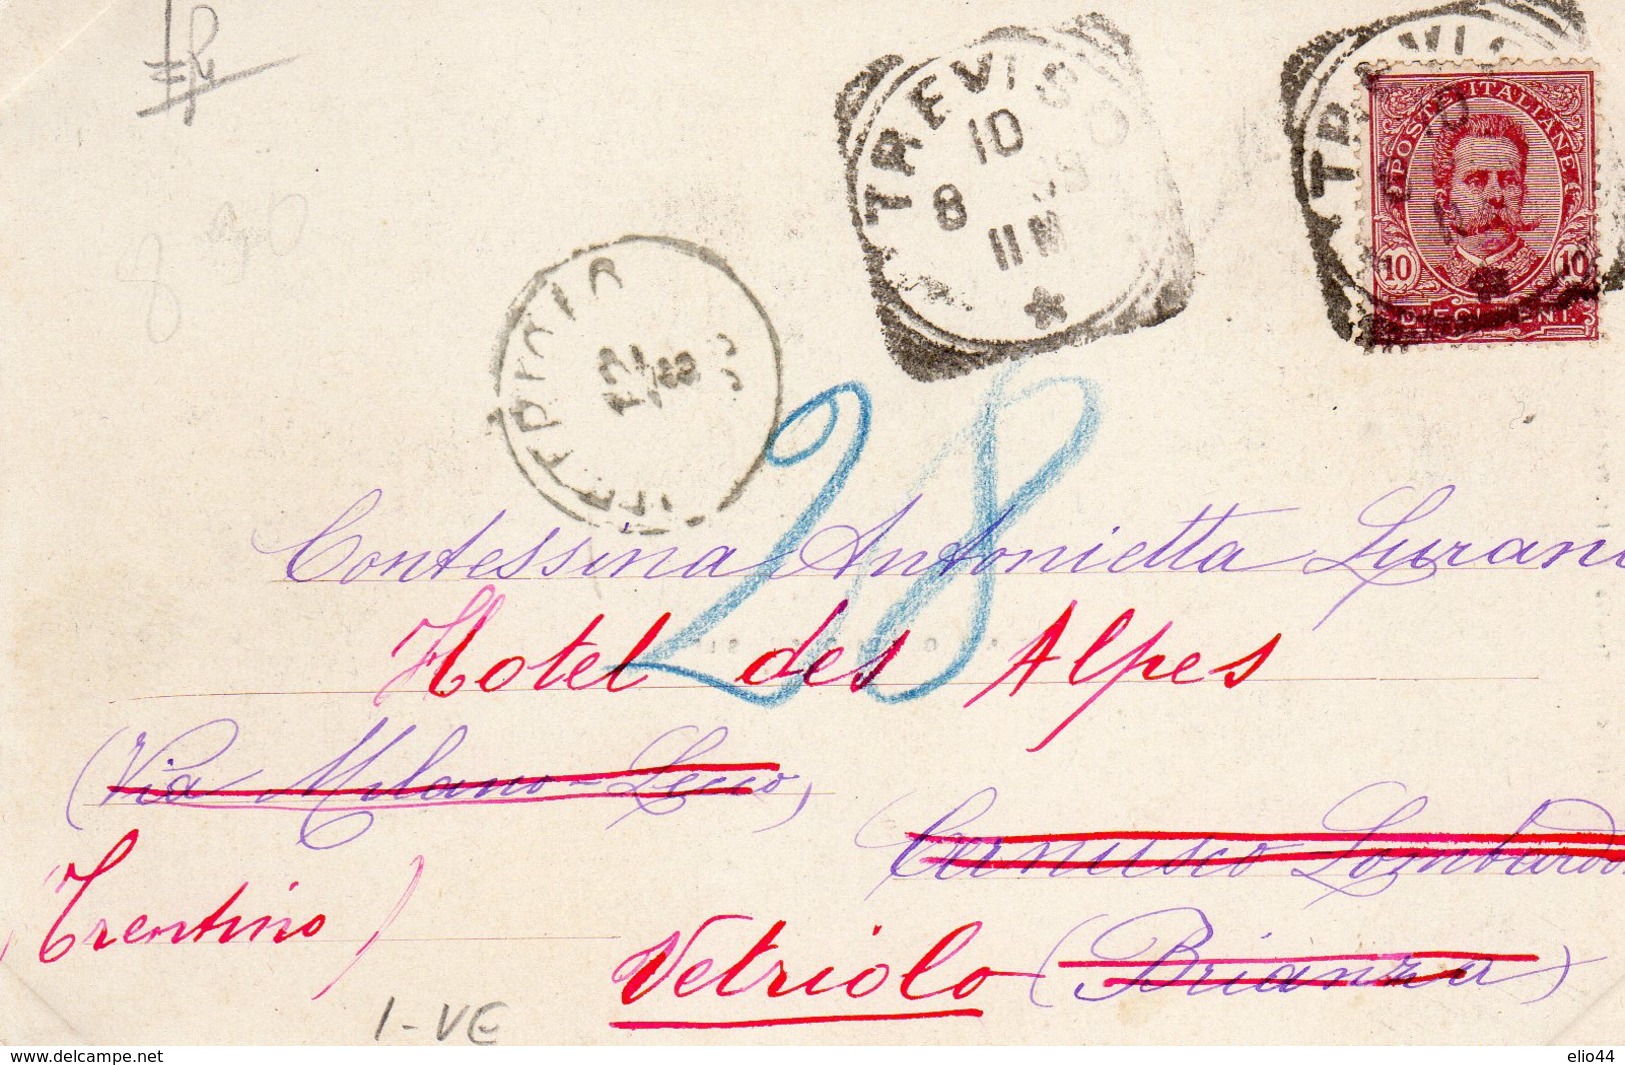 TREVISO
10
8 98
11 M
TREVIS
10
POSTE ITALIANE
10 10
VETRIOLO
12
8
28
Contessina Antonietta Lurani
Hotel des Alpes
(Via Milano-Lecco)
Cernusco Lombardo
Trentino)
Vetriolo (Brianza)
I-VE
www.delcampe.net
elio44